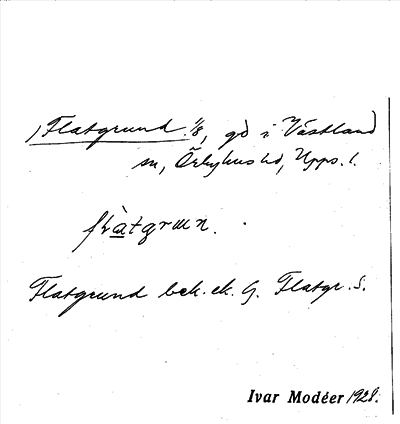 Flatgrund 1/8, gd i Västland
sn, Örbyhus hd, Upps. l.
flàtgrɯn.
Flatgrund bek. ek. G. Flatgr. S.
Ivar Modéer 1928.